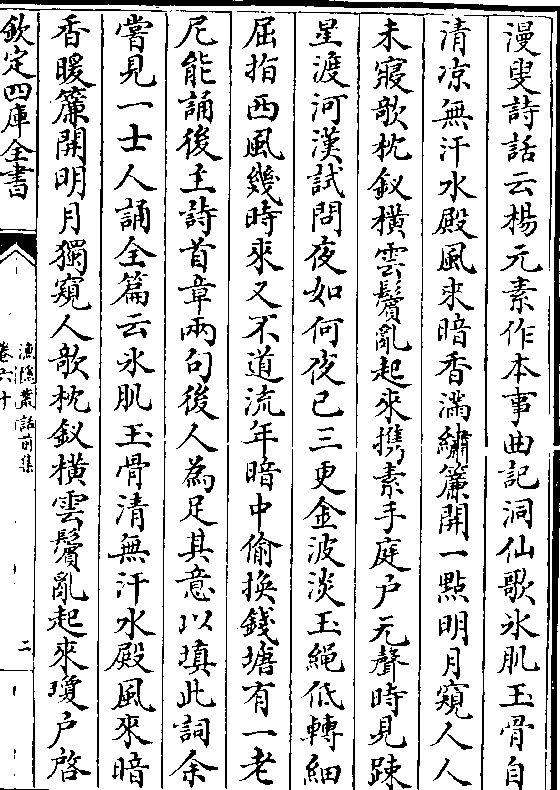 漫叟詩話云楊元素作本事曲記洞仙歌氷肌玉骨自
清凉無汗水殿風来暗香滿繡簾開一㸃明月窺人人
未寢欹枕釵橫雲鬢亂起來攜素手庭户无聲時見踈
星渡河漢試問夜如何夜已三更金波淡玉䋲低轉細
屈指西風幾時來又不道流年暗中偷換錢塘有一老
尼能誦後主詩首章兩句後人為足其意以填此詞余
嘗見一士人誦全篇云氷肌玉骨清無汗水殿風來暗
香暖簾開明月獨窺人欹枕釵橫雲鬢亂起來瓊户啓
欽定四庫全書
漁隱叢話前集
卷六十
二